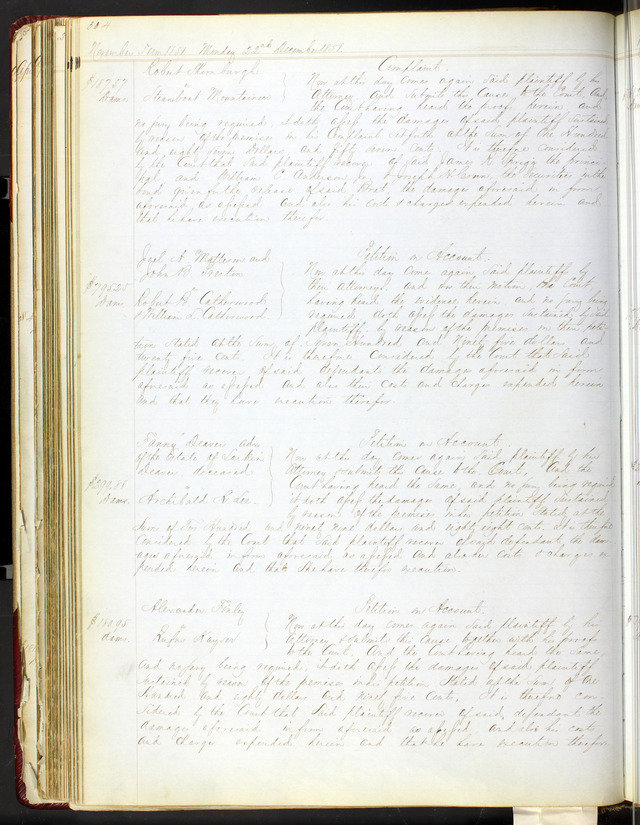 304
November Term 1851 Monday 22nd December 1851
Robert Thornburgh } Complaint.
$187.57 vs } Now at this day comes again said plaintiff by his
Dams. Steam Boat Mountaineer } Attorney and submits the Cause to the Court. And
the Court having heard the proof herein and
no jury being required. It doth assess the damages of said plaintiff sustained
by reason of the premises in his Complaint set forth at the sum of One Hundred
and eighty seven Dollars and fifty seven Cents. It is therefore considered
by the Court that said plaintiff recover of said James R. the
and William C Anderson Jr. & Joseph N. the securities in the
bond given for the release of said Boat, the damages aforesaid, in form
aforesaid as assessed and also his costs & charges expended herein and
that he have execution therefor.
Joel A Matteson and } Petition in Account.
John B Preston } Now at this day come again said plaintiffs by
$795.25 vs } their attorney, and on their motion, the Court
Dams. Robert H Catherwood } having heard the evidence herein and no jury being
& William L Catherwood } required, doth assess the damages sustained by said
plaintiffs by reason of the premises in their peti-
tion stated at the sum of Seven Hundred and Ninety five dollars and
twenty five cents. It is therefore Considered by the Court that said
plaintiffs recover of said defendants the damages aforesaid in form
aforesaid as assessed and also their costs and charges expended herein
and that they have execution therefor.
Fanny Deaver adx } Petition in Account.
of the Estate of Larkin } Now at this day comes again said plaintiff by her
Deaver deceased } Attorney & submits the Cause to the Court. And the
vs } Court having heard the same, and no jury being required
Dams. Archibald R. } it doth assess the damages of said plaintiff sustained
by reason of the premises in her petition stated at the
Sum of Two Hundred and ninety nine dollars and eighty eight cents. It is therefore
Considered by the Court that said plaintiff recover of said defendant, the dam-
ages aforesaid in form aforesaid as assessed and also her costs & charges ex-
pended herein and that she have therefor execution.
Alexander Finley } Petition in Account.
$180.95 vs } Now at this day comes again said plaintiff by his
dams. Rufus Kayser } Attorney & submits the Cause together with his proofs
to the Court. And the Court having heard the same
and no jury being required, it doth assess the damages of said plaintiff
sustained by reason of the premises in his petition stated at the Sum of One
Hundred and eighty dollars and ninety five Cents. It is therefore con-
sidered by the Court that said plaintiff recover of said defendant the
damages aforesaid in form aforesaid as assessed and also his costs
and charges expended herein and that he have execution therefor.